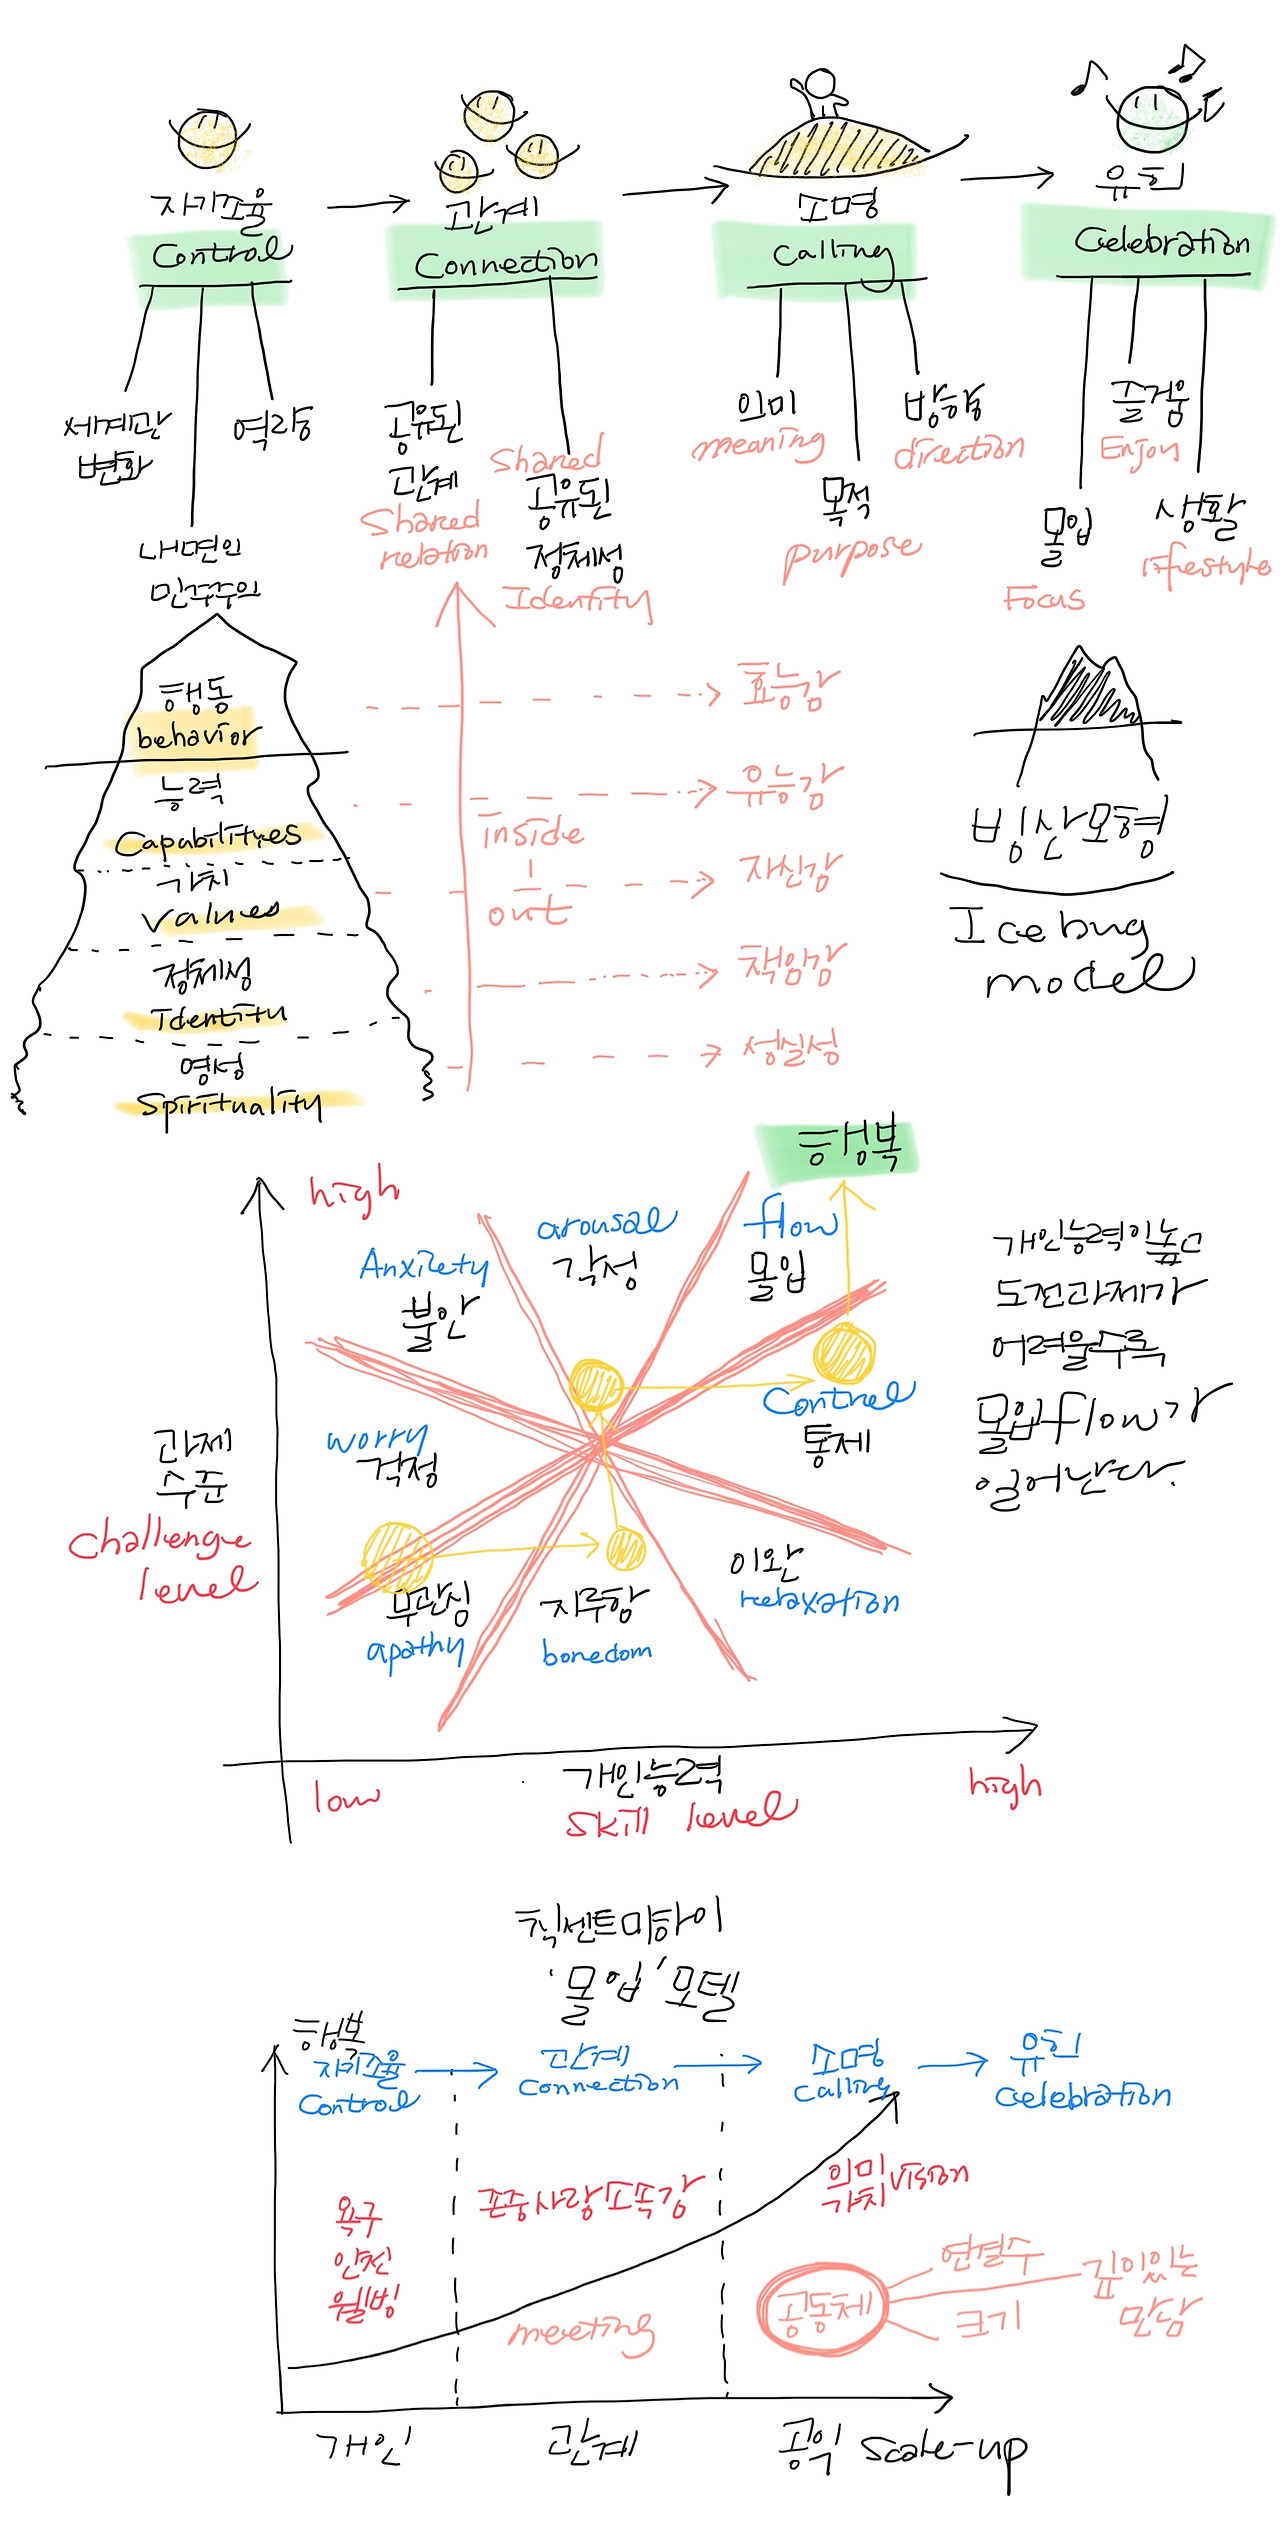 자기조율
Control
관계
Connection
소명
Calling
유희
Celebration
세계관
변화
역량
내면의
민주주의
공유된
관계
Shared
relation
Shared
공유된
정체성
Identity
의미
meaning
목적
purpose
방향
direction
즐거움
Enjoy
몰입
Focus
생활
lifestyle
행동
behavior
능력
Capabilityes
가치
Values
정체성
Identity
영성
Spirituality
inside
out
효능감
유능감
자신감
책임감
성실성
빙산모형
Icebug
model
행복
high
Anxiety
불안
arousal
각성
flow
몰입
worry
걱정
Control
통제
무관심
apathy
지루함
boredom
이완
relaxation
과제
수준
challenge
level
low
개인능력
skill level
high
개인능력이 높고
도전과제가
어려울수록
몰입 flow가
일어난다.
칙센트미하이
'몰입' 모델
행복
자기조율
Control
관계
Connection
소명
Calling
유희
Celebration
욕구
안전
웰빙
존중 사랑 소속감
의미
가치
vision
meeting
공동체
연결수
크기
깊이있는
만남
개인
관계
공익 Scale-up